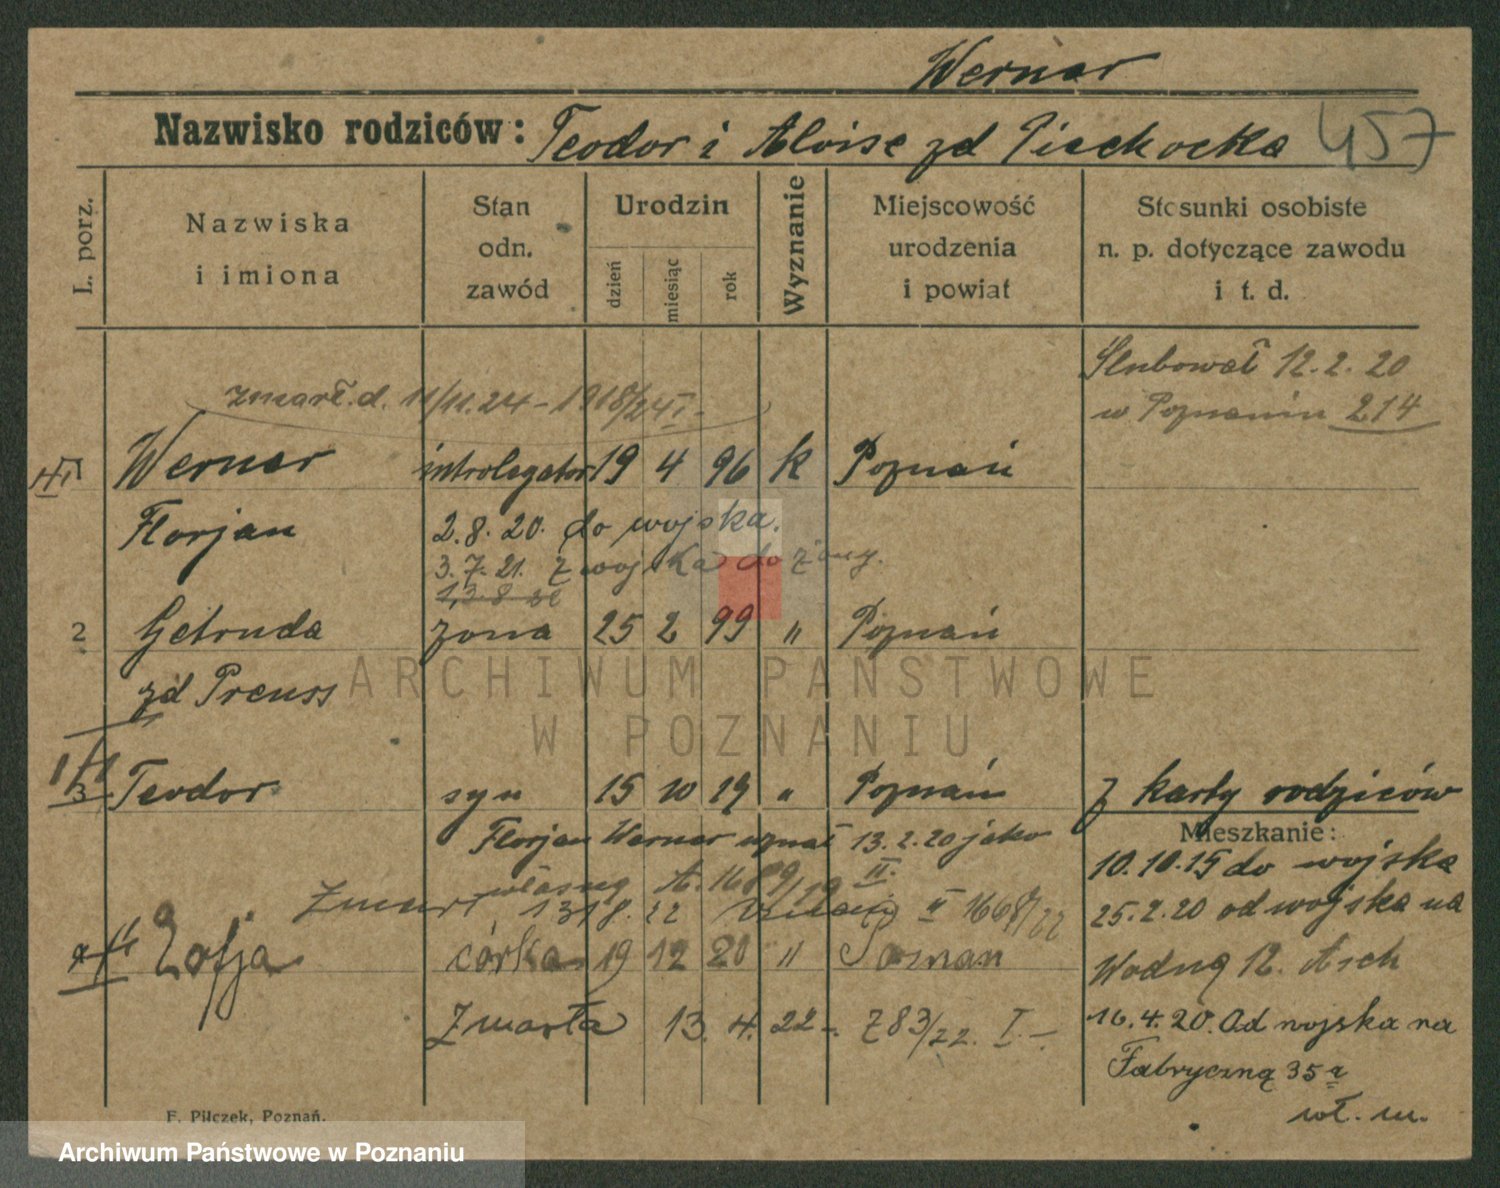 Wernar
Nazwisko rodziców: Teodor i Aloise zd Piechocka 457
L. porz.
Nazwiska
i imiona
Stan
odn.
zawód
Urodzin
dzień
miesiąc
rok
Wyznanie
Miejscowość
urodzenia
i powiat
Stosunki osobiste
n. p. dotyczące zawodu
i t. d.
Ślubował 12.2.20
w Poznaniu 214
zmarł. d. 11/11.24 - 1918/24 I -
Wernar introlegator 19 4 96 k Poznań
Florjan 2.8.20. do wojska.
3.7.21. z wojska do żony.
2 Getruda żona 25 2 99 " Poznań
zd Preuss
3 Teodor syn 15 10 19 " Poznań z karty rodziców
Florjan Wernar uznał 13.2.20 jako
II.
własny A. 1689/19
Zmarł 13 8. 22 II 1668/22
Zofja córka 19 12 20 " Poznan
Zmarła 13. 4. 22 - Z 83/22. I. -
Mieszkanie:
10.10.15 do wojska
25.2.20 od wojska na
Wodną 12. Asch
16.4.20. Od wojska na
Fabryczną 35 a
wł. m.
F. Pilczek, Poznań.
ARCHIWUM PAŃSTWOWE
W POZNANIU
Archiwum Państwowe w Poznaniu